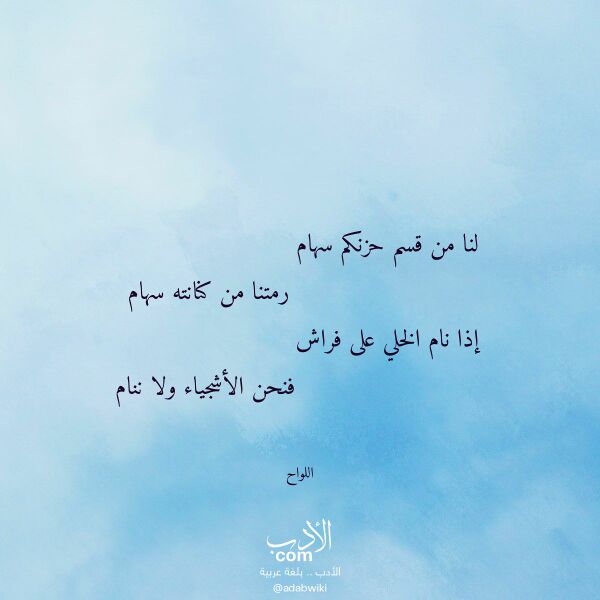 لنا من قسم حزنكم سهام
رمتنا من كنانته سهام
إذا نام الخلي على فراش
فنحن الأشجياء ولا ننام
اللواح
الأدب
com
الأدب .. بلغة عربية
@adabwiki